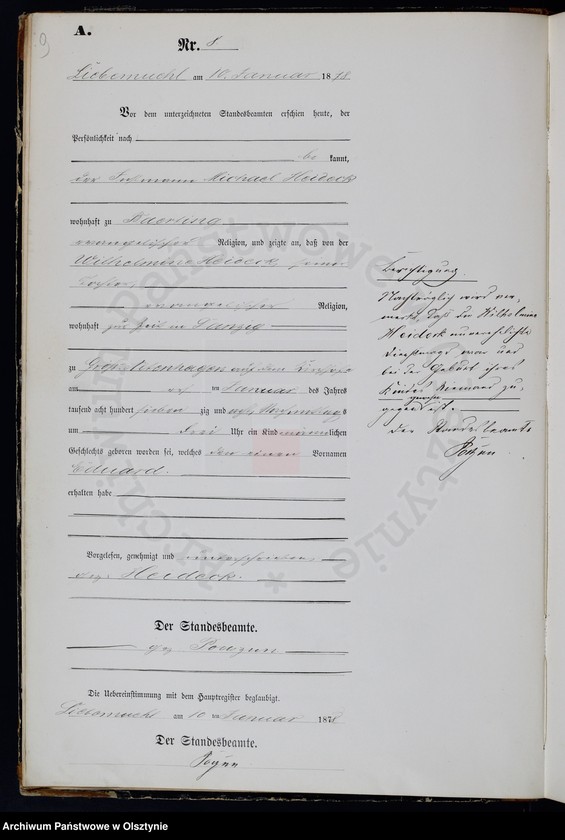 9
A.
Nr. 8
Liebemuehl am 10. Januar 1878
Vor dem unterzeichneten Standesbeamten erschien heute, der
Persönlichkeit nach
be kannt,
der Michael Heideck
wohnhaft zu
evangelischer Religion, und zeigte an, daß von der
Wilhelmine Heideck seiner
Tochter
evangelischer Religion,
wohnhaft zur Zeit in Danzig
zu
am acht ten Januar des Jahres
tausend acht hundert sieben zig und acht s
um drei Uhr ein Kind männlichen
Geschlechts geboren worden sei, welches den einen Vornamen
Eduard.
erhalten habe
Vorgelesen, genehmigt und unterschrieben
gez. Heideck.
Der Standesbeamte.
gez
Die Uebereinstimmung mit dem Hauptregister beglaubigt.
Liebemuehl am 10 ten Januar 1878
Der Standesbeamte.
Berichtigung.
Nachträglich wird ver-
merkt, daß die Wilhelmine
Heideck unverehelichte
Dienstmagd war und
bei der Geburt ihres
Kindes Niemand zu-
gewesen
gegen ist.
Der Standesbeamte
Archiwum Państwowe w Olsztynie
Archiwum Państwowe w Olsztynie